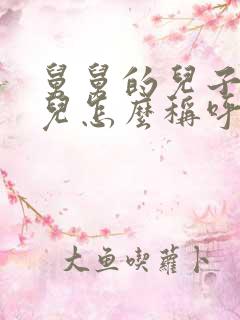 舅舅的兒子
兒怎麼稱呼
大鱼喫蘿卜